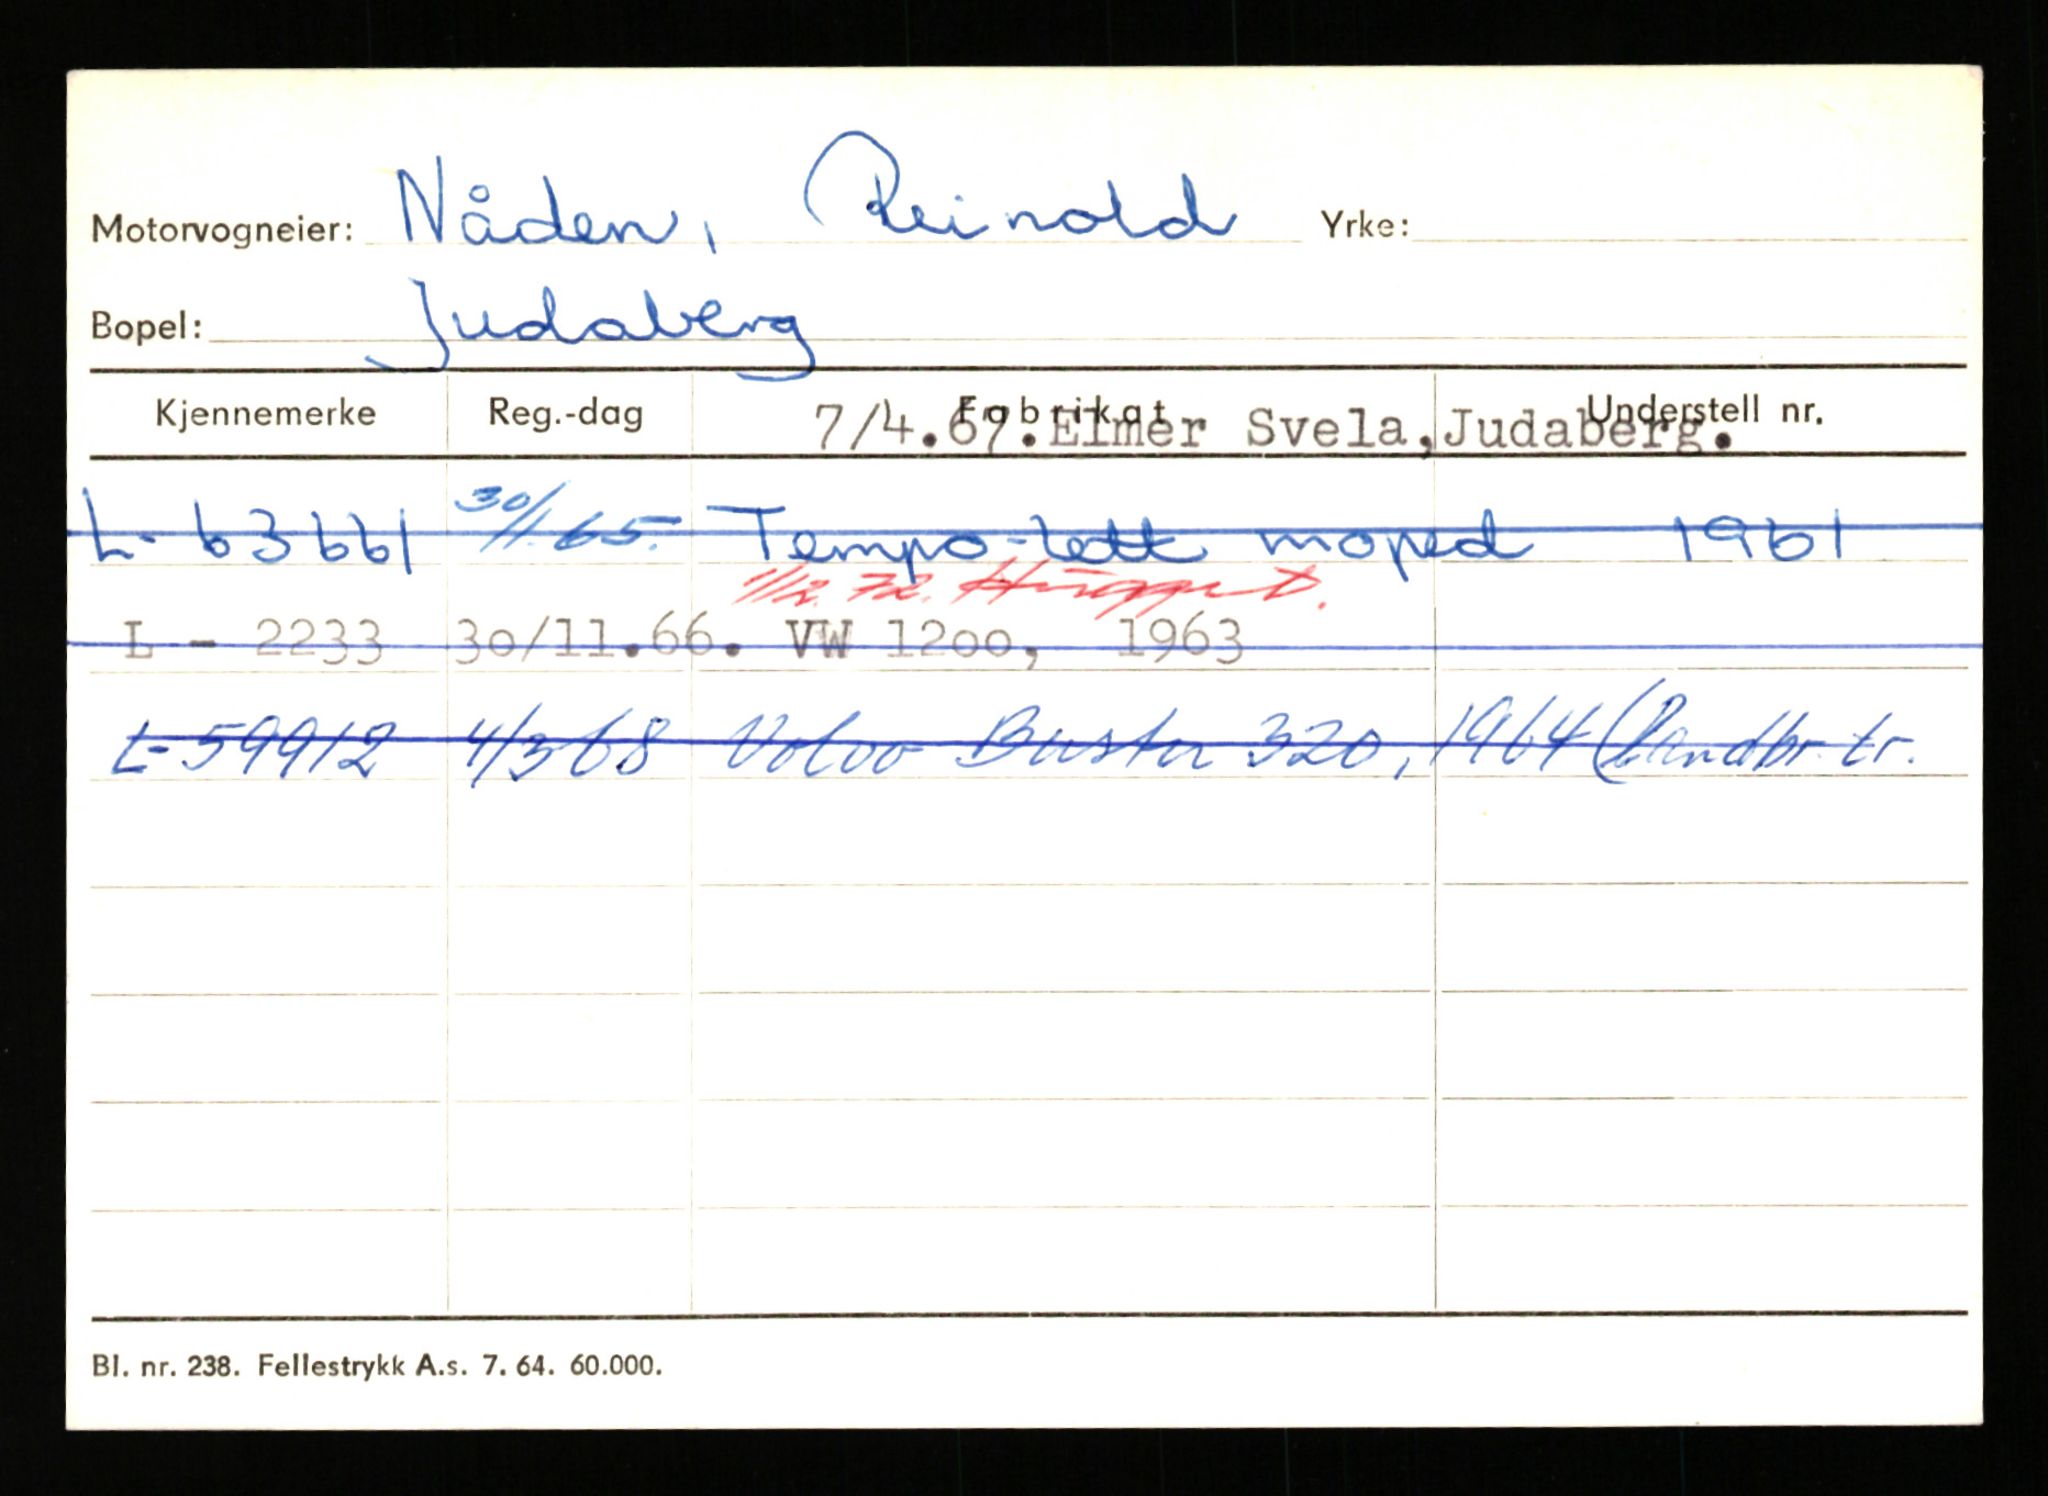 Motorvogneier: Nåden, Reinold Yrke:
Bopel: Judaberg
Kjennemerke Reg.-dag Fabrikat Understell nr.
7/4.67. Elmer Svela, Judaberg.
L- 63661 30/1.65. Tempo-lett moped 1961
1/2.72. Hugget.
L - 2233 30/11.66. VW 1200, 1963
L-59912 4/3 68 Volvo Buster 320, 1964 (Landbr. tr.
Bl. nr. 238. Fellestrykk A.s. 7. 64. 60.000.